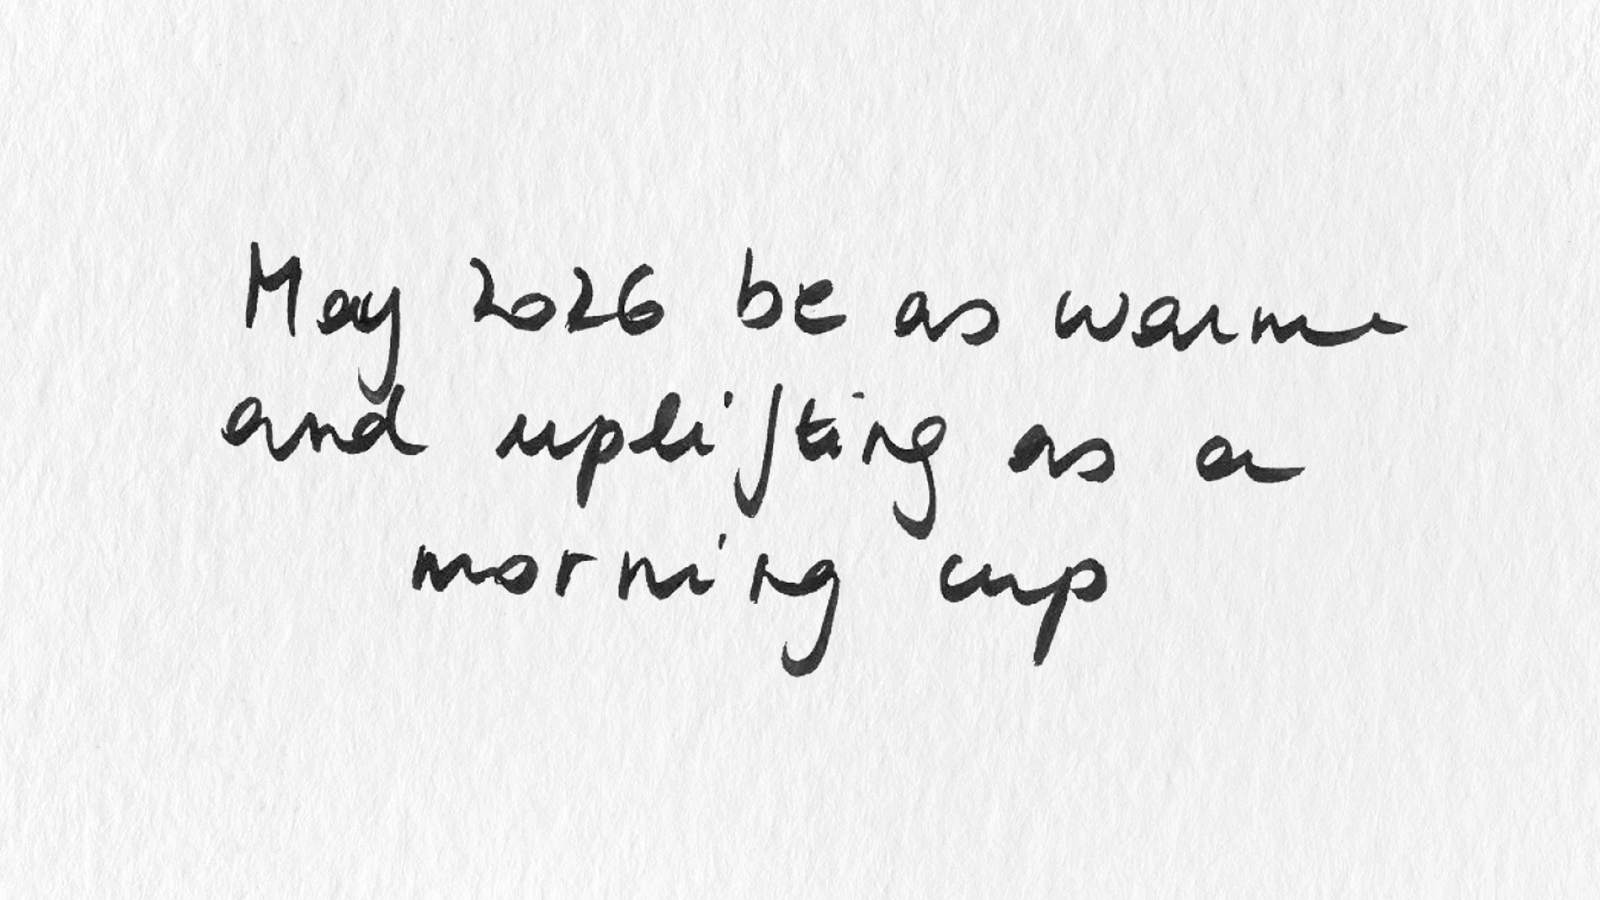 May 2026 be as warm
and uplifting as a
morning cup